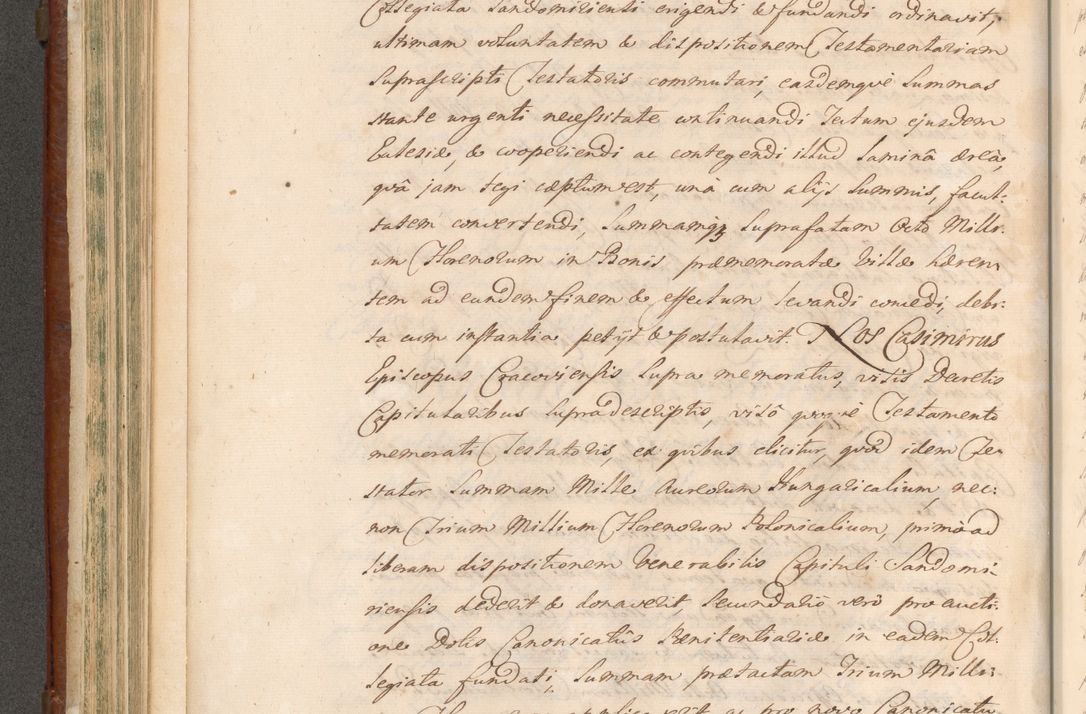 Collegiata Sandomiriensi erigendi & fundandi ordinavit,
ultimam voluntatem & dispositionem Testamentariam
suprascripti Testatoris commutari, easdemqve Summas
stante urgenti necessitate continuandi Tectum ejusdem
Eclesiæ, & cooperiendi ac contegendi illud laminâ æreâ,
qvâ jam tegi cæptum est, unà cum alijs Summis, facul-
tatem convertendi, Summamqz Suprafatam Octo Milli-
um Florenorum in Bonis præmemoratæ Villæ hæren-
tem ad eundem finem & effectum levandi concedi, debi-
ta cum instantia petijt & postulavit. Nos Casimirus
Episcopus Cracoviensis Supra memoratus, visis Decretis
Capitularibus supradescriptis, visô qvoqvè Testamento
memorati Testatoris, ex qvibus elicitur, qvod idem Te-
stator Summam Mille Aureorum Hungaricalium, nec:
non Trium Millium Florenorum Polonicalium, primò ad
liberam dispositionem Venerabilis Capituli Sandomi-
riensis dederit & donaverit, Secundariò verò pro aucti-
one Dotis Canonicatûs Pænitentiariæ in eadem Col-
legiata fundati, Summam prætactam Trium Milli-
pro novo Canonicatu